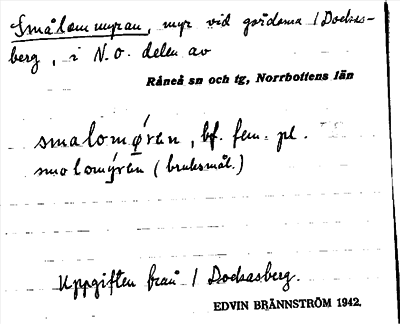 Smålommyran, myr vid gårdarna / Docksas-
berg, i N.O. delen av
Råneå sn och tg, Norrbottens län
smalomǿ̣ran, bf. fem. pl.
smolomýran (bruksmål.)
Uppgiften från / Docksasberg.
EDVIN BRÄNNSTRÖM 1942.